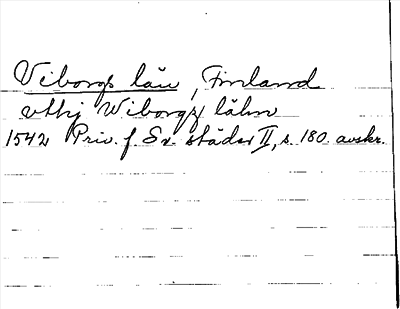 Viborgs län, Finland
vthj Wiborgz lähn
1542 Priv. f. Sv. städer II, s. 180. avskr.